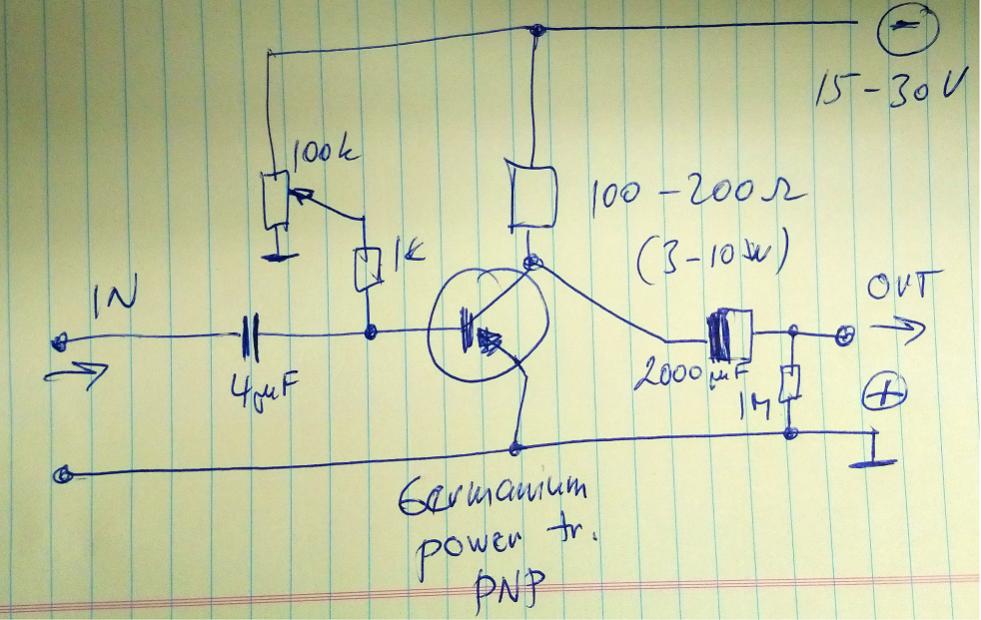 −
15-30V
100k
100-200Ω
(3-10W)
1K
IN
OUT
4μF
2000μF
1M
+
Germanium
power tr.
PNP